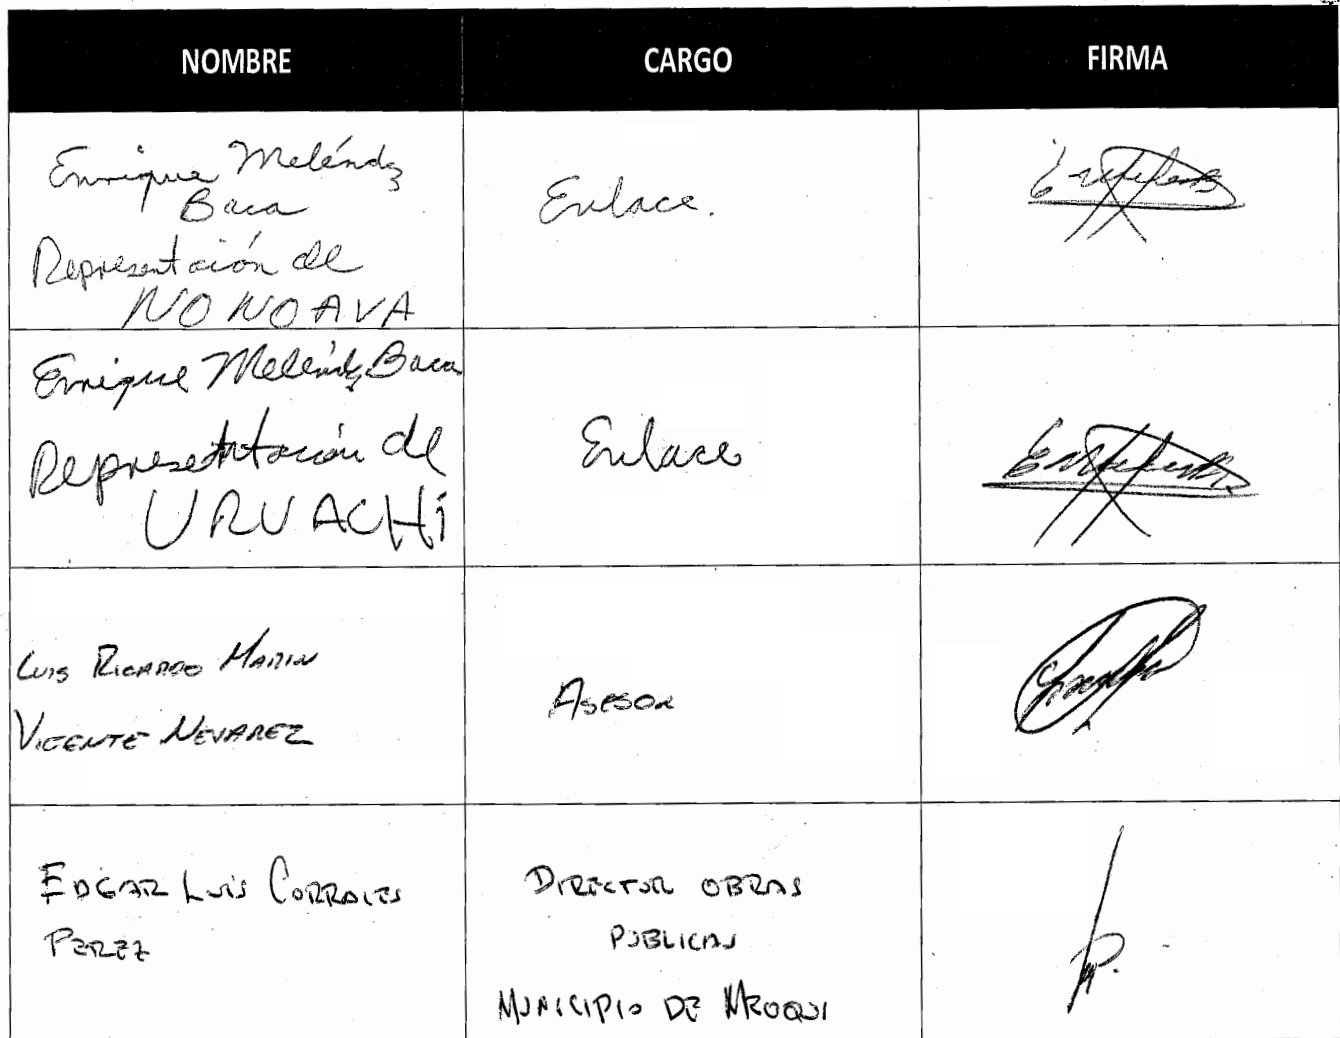 NOMBRE CARGO FIRMA
Enrique Meléndz
Baca
Representación de
NONOAVA
Enlace.
Enrique Meléndz Baca
Representación de
URUACHi
Enlace
Luis Ricardo Marin
Vicente Nevarez
Asesor
Edgar Luis Corrales
Perez
Director obras
Publicas
Municipio de Meoqui